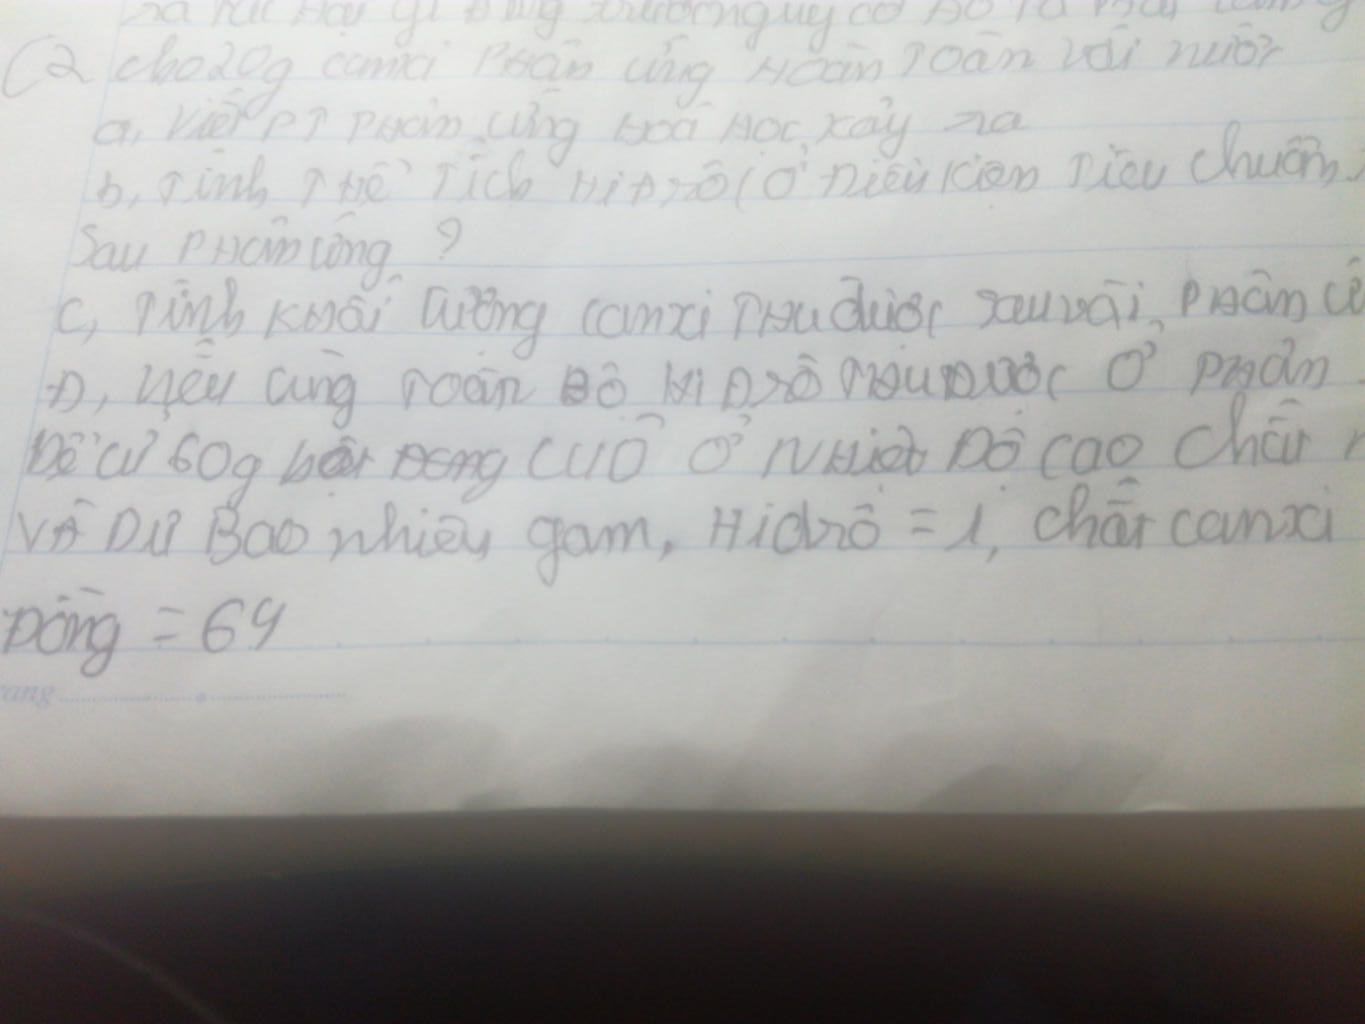 C2 cho 20g canxi phản ứng hoàn toàn với nước
a, viết PT phản ứng hoá học xảy ra
b, Tính thể tích hiđrô (ở điều kiện tiêu chuẩn
Sau phản ứng ?
C, Tính khối lượng canxi thu được sau
D, Nếu cùng toàn bộ hiđrô thu được ở phản
để cử 60g bột đồng CUO ở nhiệt độ cao chất
và dư Bao nhiêu gam, Hiđrô = 1, chất canxi
Đồng = 64
rang